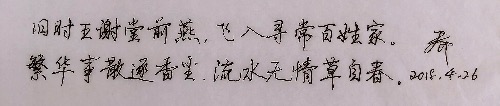 旧时王谢堂前燕，飞入寻常百姓家。
繁华事散逐香尘，流水无情草自春。2018.4.26